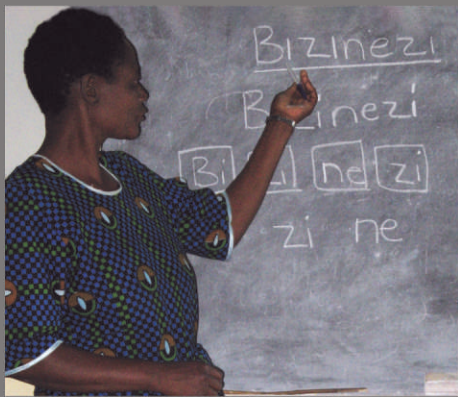 Bizinezi
Bizinezi
Bi zi ne zi
zi ne